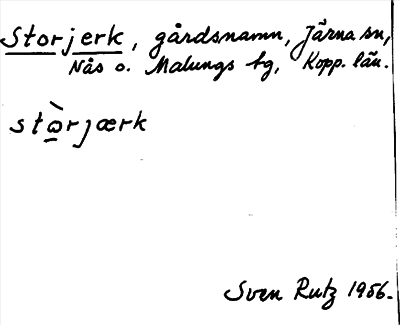 Storjerk, gårdsnamn, Järna sn,
Nås o. Malungs tg, Kopp. län.
stɷ̀rjærk
Sven Rutz 1956.